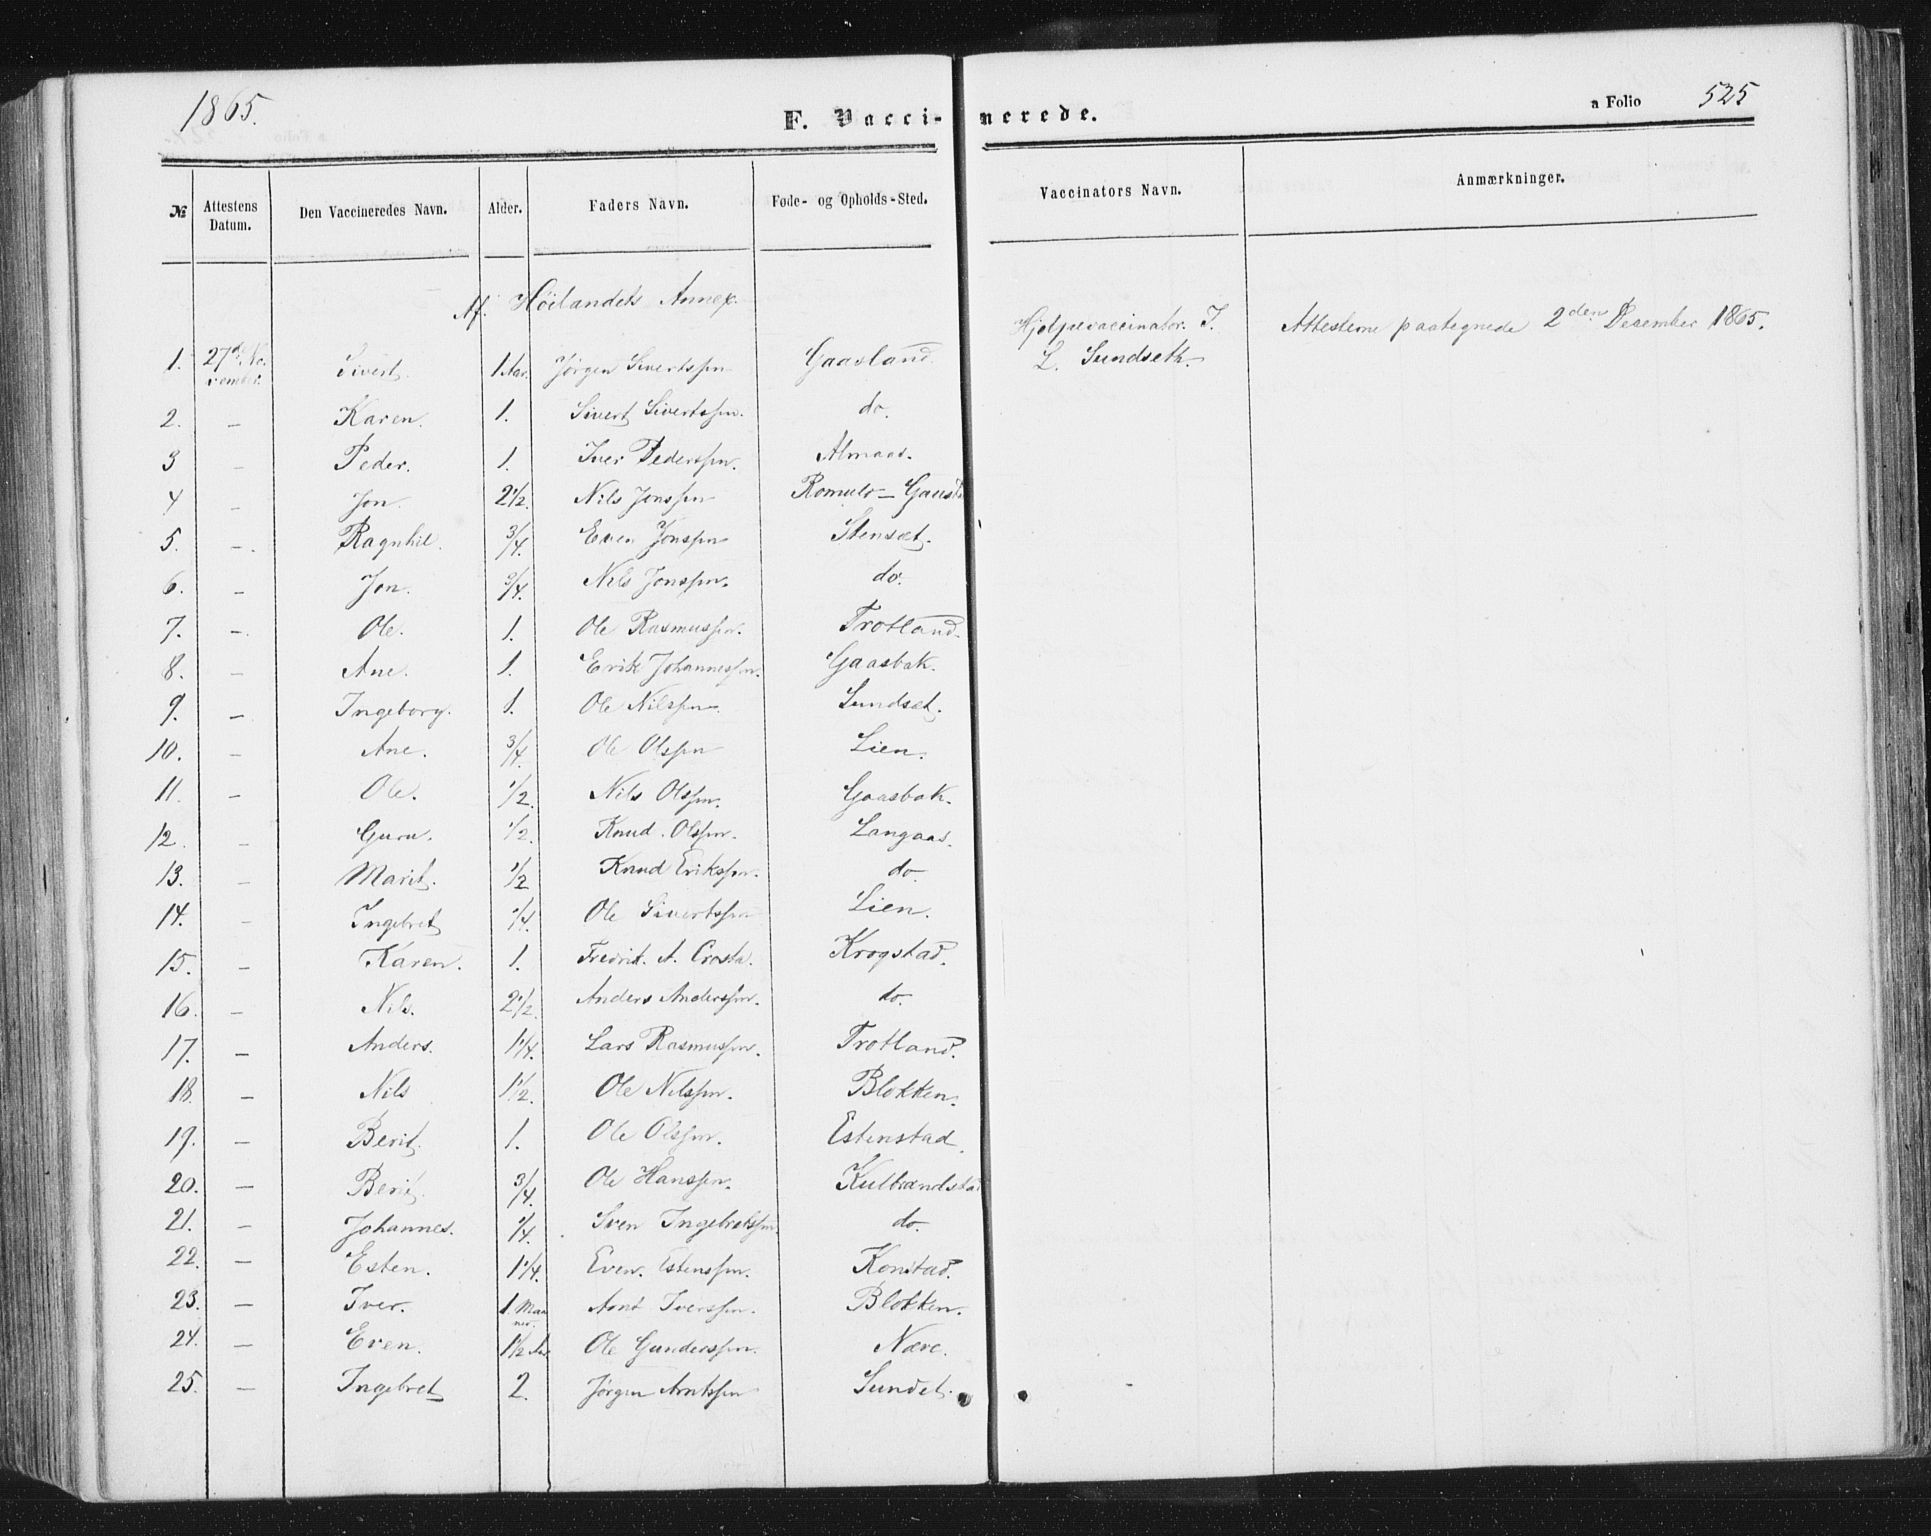 1865.
F. Vacci-nerede.
a Folio 525
№ Attestens Datum. Den Vaccineredes Navn. Alder. Faders Navn. Føde- og Opholds-Sted. Vaccinators Navn. Anmærkninger.
Af. Höilandets Annex.
Hjelpevaccinator. I. L. Sundseth.
Attesterne paategnede 2den December 1865.
1. 27de November. Sivert. 1 Aar. Jörgen Sivertssen Gaasland
2. – Karen. 1. Sivert Sivertssen. do.
3 – Peder. 1. Iver Pederssen. Almaas.
4 – Jon. 2 1/2. Nils Jonssen Romulo –
5. – Ragnhil. 3/4. Even Jonssen Stenset.
6. – Jon. /4. Nils Jonssen. do.
7. – Ole. 1. Ole Rasmussen. Trotland.
8. – Ane. 1. Erik Johannessen. Gaasbak.
9. – Ingeborg. 1. Ole Nilssen. Sundset.
10. – Ane. 3/4. Ole Olssen Lien.
11. – Ole. 1/2. Nils Olssen. Gaasbak.
12. – Guru. 1/2. Knud. Olssen. Langaas.
13. – Marit. 1/2 Knud Erikssen. do.
14. – Ingebret 1/4. Ole Sivertssen Lien.
15. – Karen. 1. Fredrik. A. Krogstad.
16. – Nils. 2 1/2. Anders Anderssen. do.
17. – Anders. 1 1/4. Lars Rasmussen. Trotland.
18. – Nils 1 1/2. Ole Nilssen. Blokken.
19. – Berit. 1. Ole Olssen. Estenstad.
20. – Berit. 3/4. Ole Hanssen. Kulbrandstad
21. – Johannes. 1/4. Sven Ingebretssen. do.
22. – Esten. 1 1/4. Even. Estenssen. Konstad.
23. – Iver. 1 Maaned. Arnt Iverssen. Blokken.
24. – Even. 1 1/2 Aar Ole Gunderssen. Nære.
25. – Ingebret 2. Jörgen Arntssen Sundet.